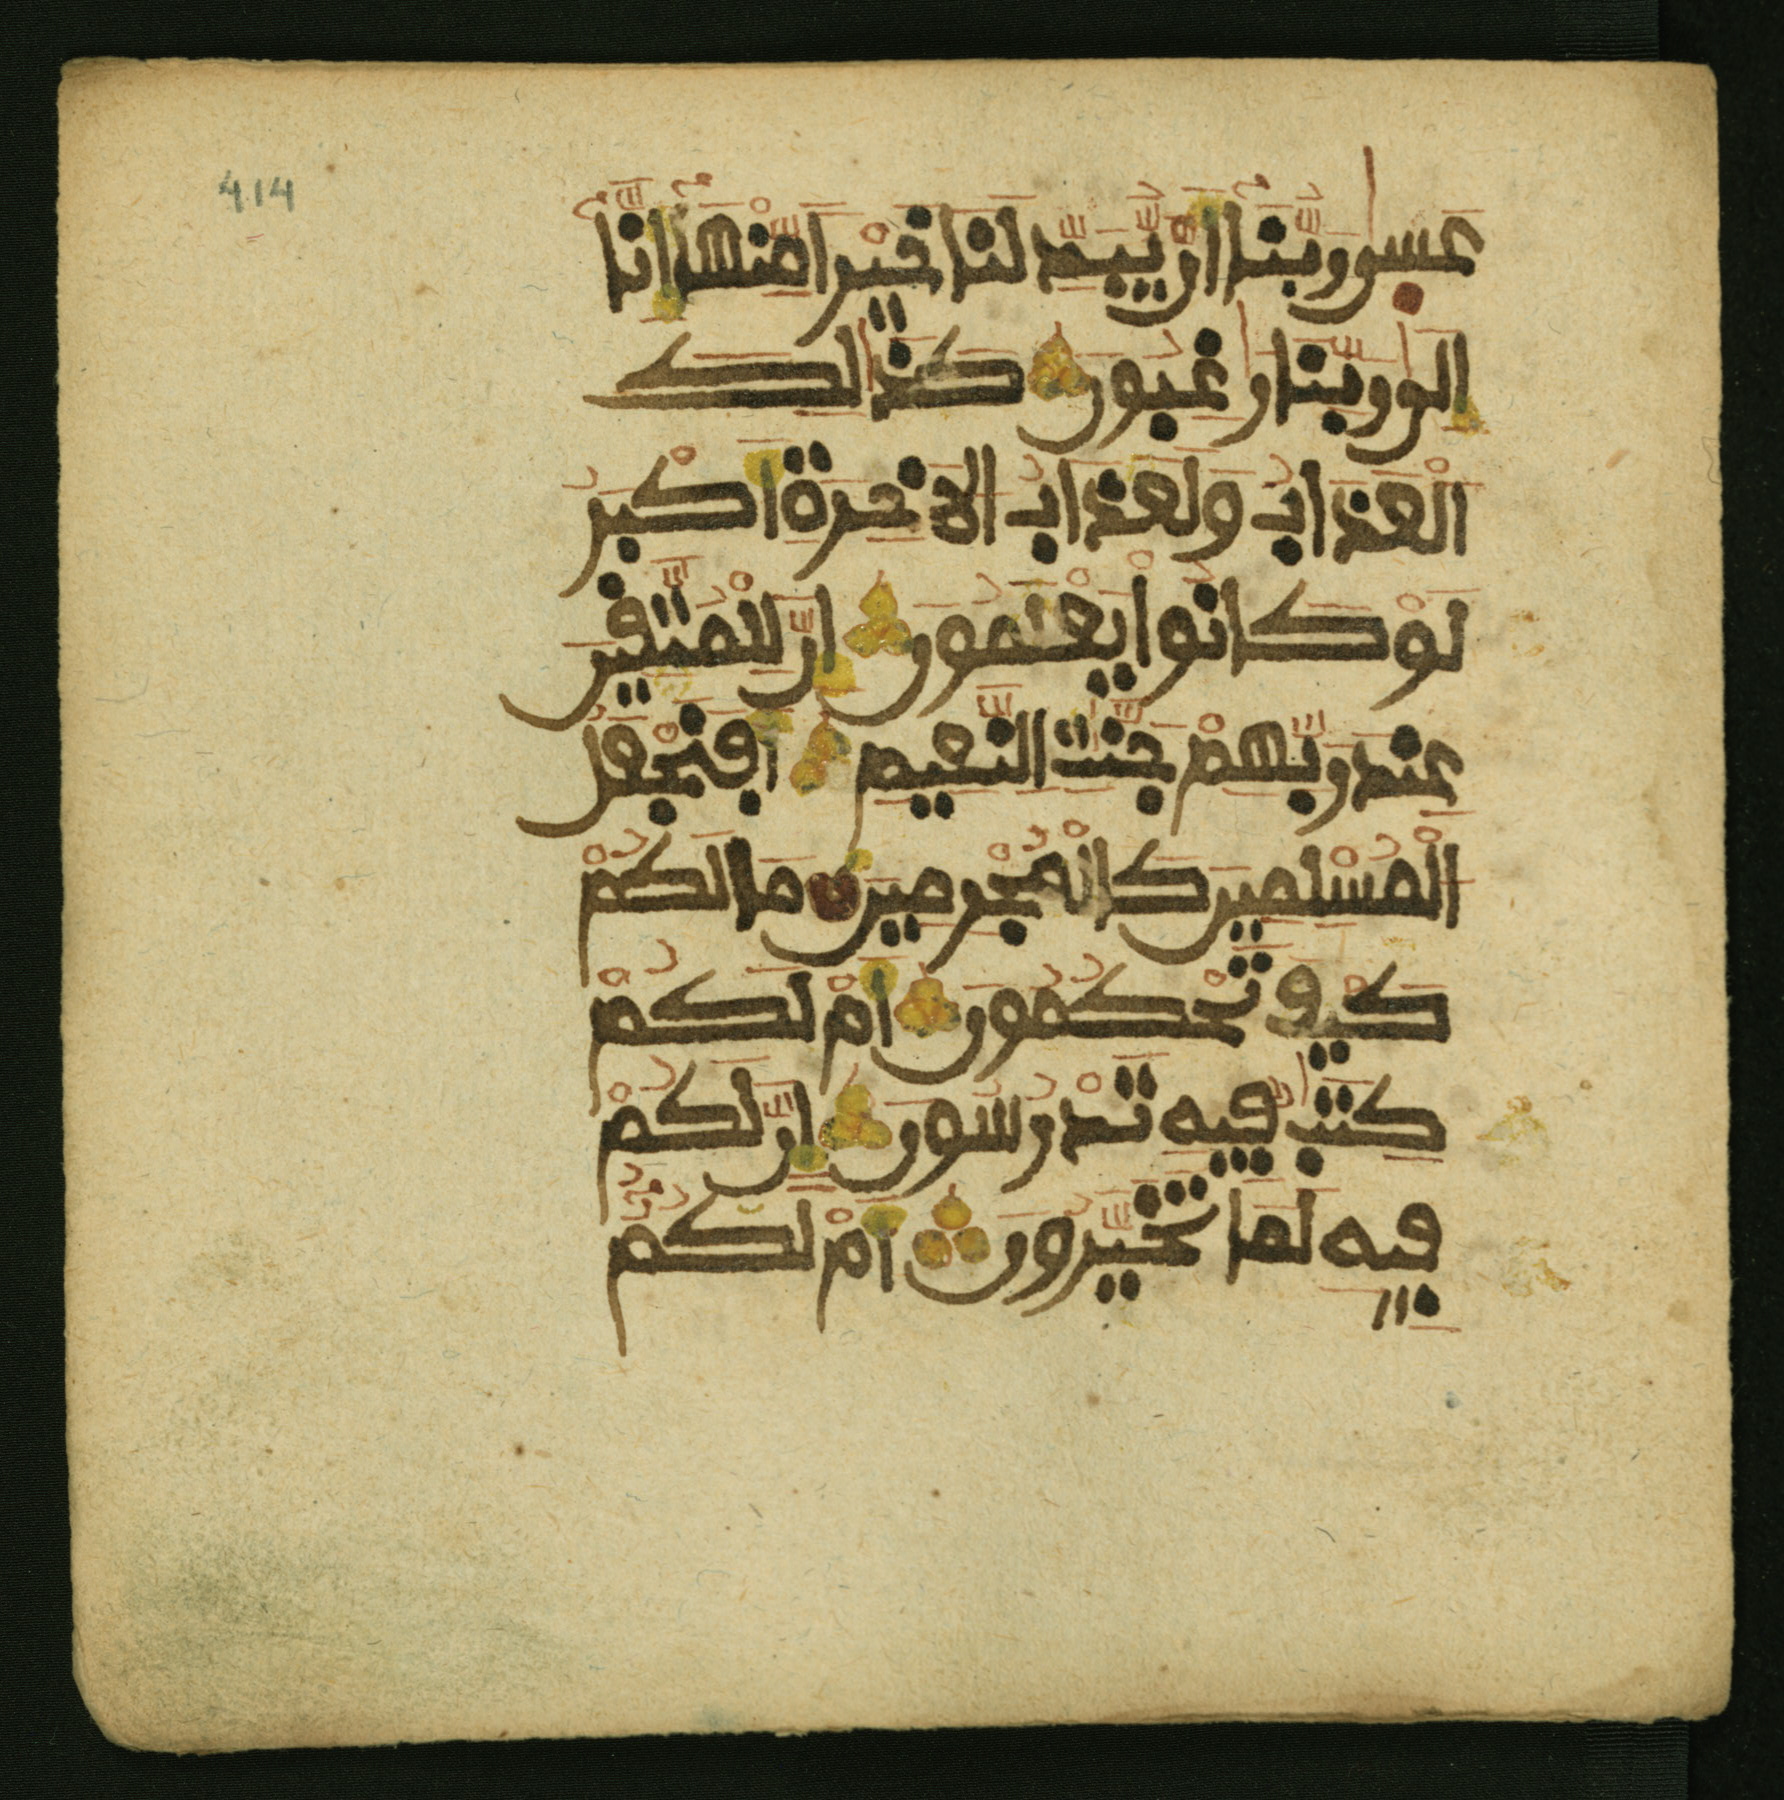 414
عَسىٰ رَبُّنَا أَنْ يُّبَدِّلَنَا خَيْرًا مِّنْهَا إِنَّا
إِلىٰ رَبِّنَا رٰغِبُونَ كَذٰلِكَ
الْعَذَابُ وَلَعَذَابُ الَاخِرَةِ أَكْبَرُ
لَوْ كَانُوا يَعْلَمُونَ إِنَّ لِلْمُتَّقِينَ
عِندَ رَبِّهِمْ جَنّٰتِ النَّعِيمِ أَفَنَجْعَلُ
الْمُسْلِمِينَ كَالْمُجْرِمِينَ مَا لَكُمْ
كَيْفَ تَحْكُمُونَ أَمْ لَكُمْ
كِتٰبٌ فِيهِ تَدْرُسُونَ إِنَّ لَكُمْ
فِيهِ لَمَا تَخَيَّرُونَ أَمْ لَكُمُ